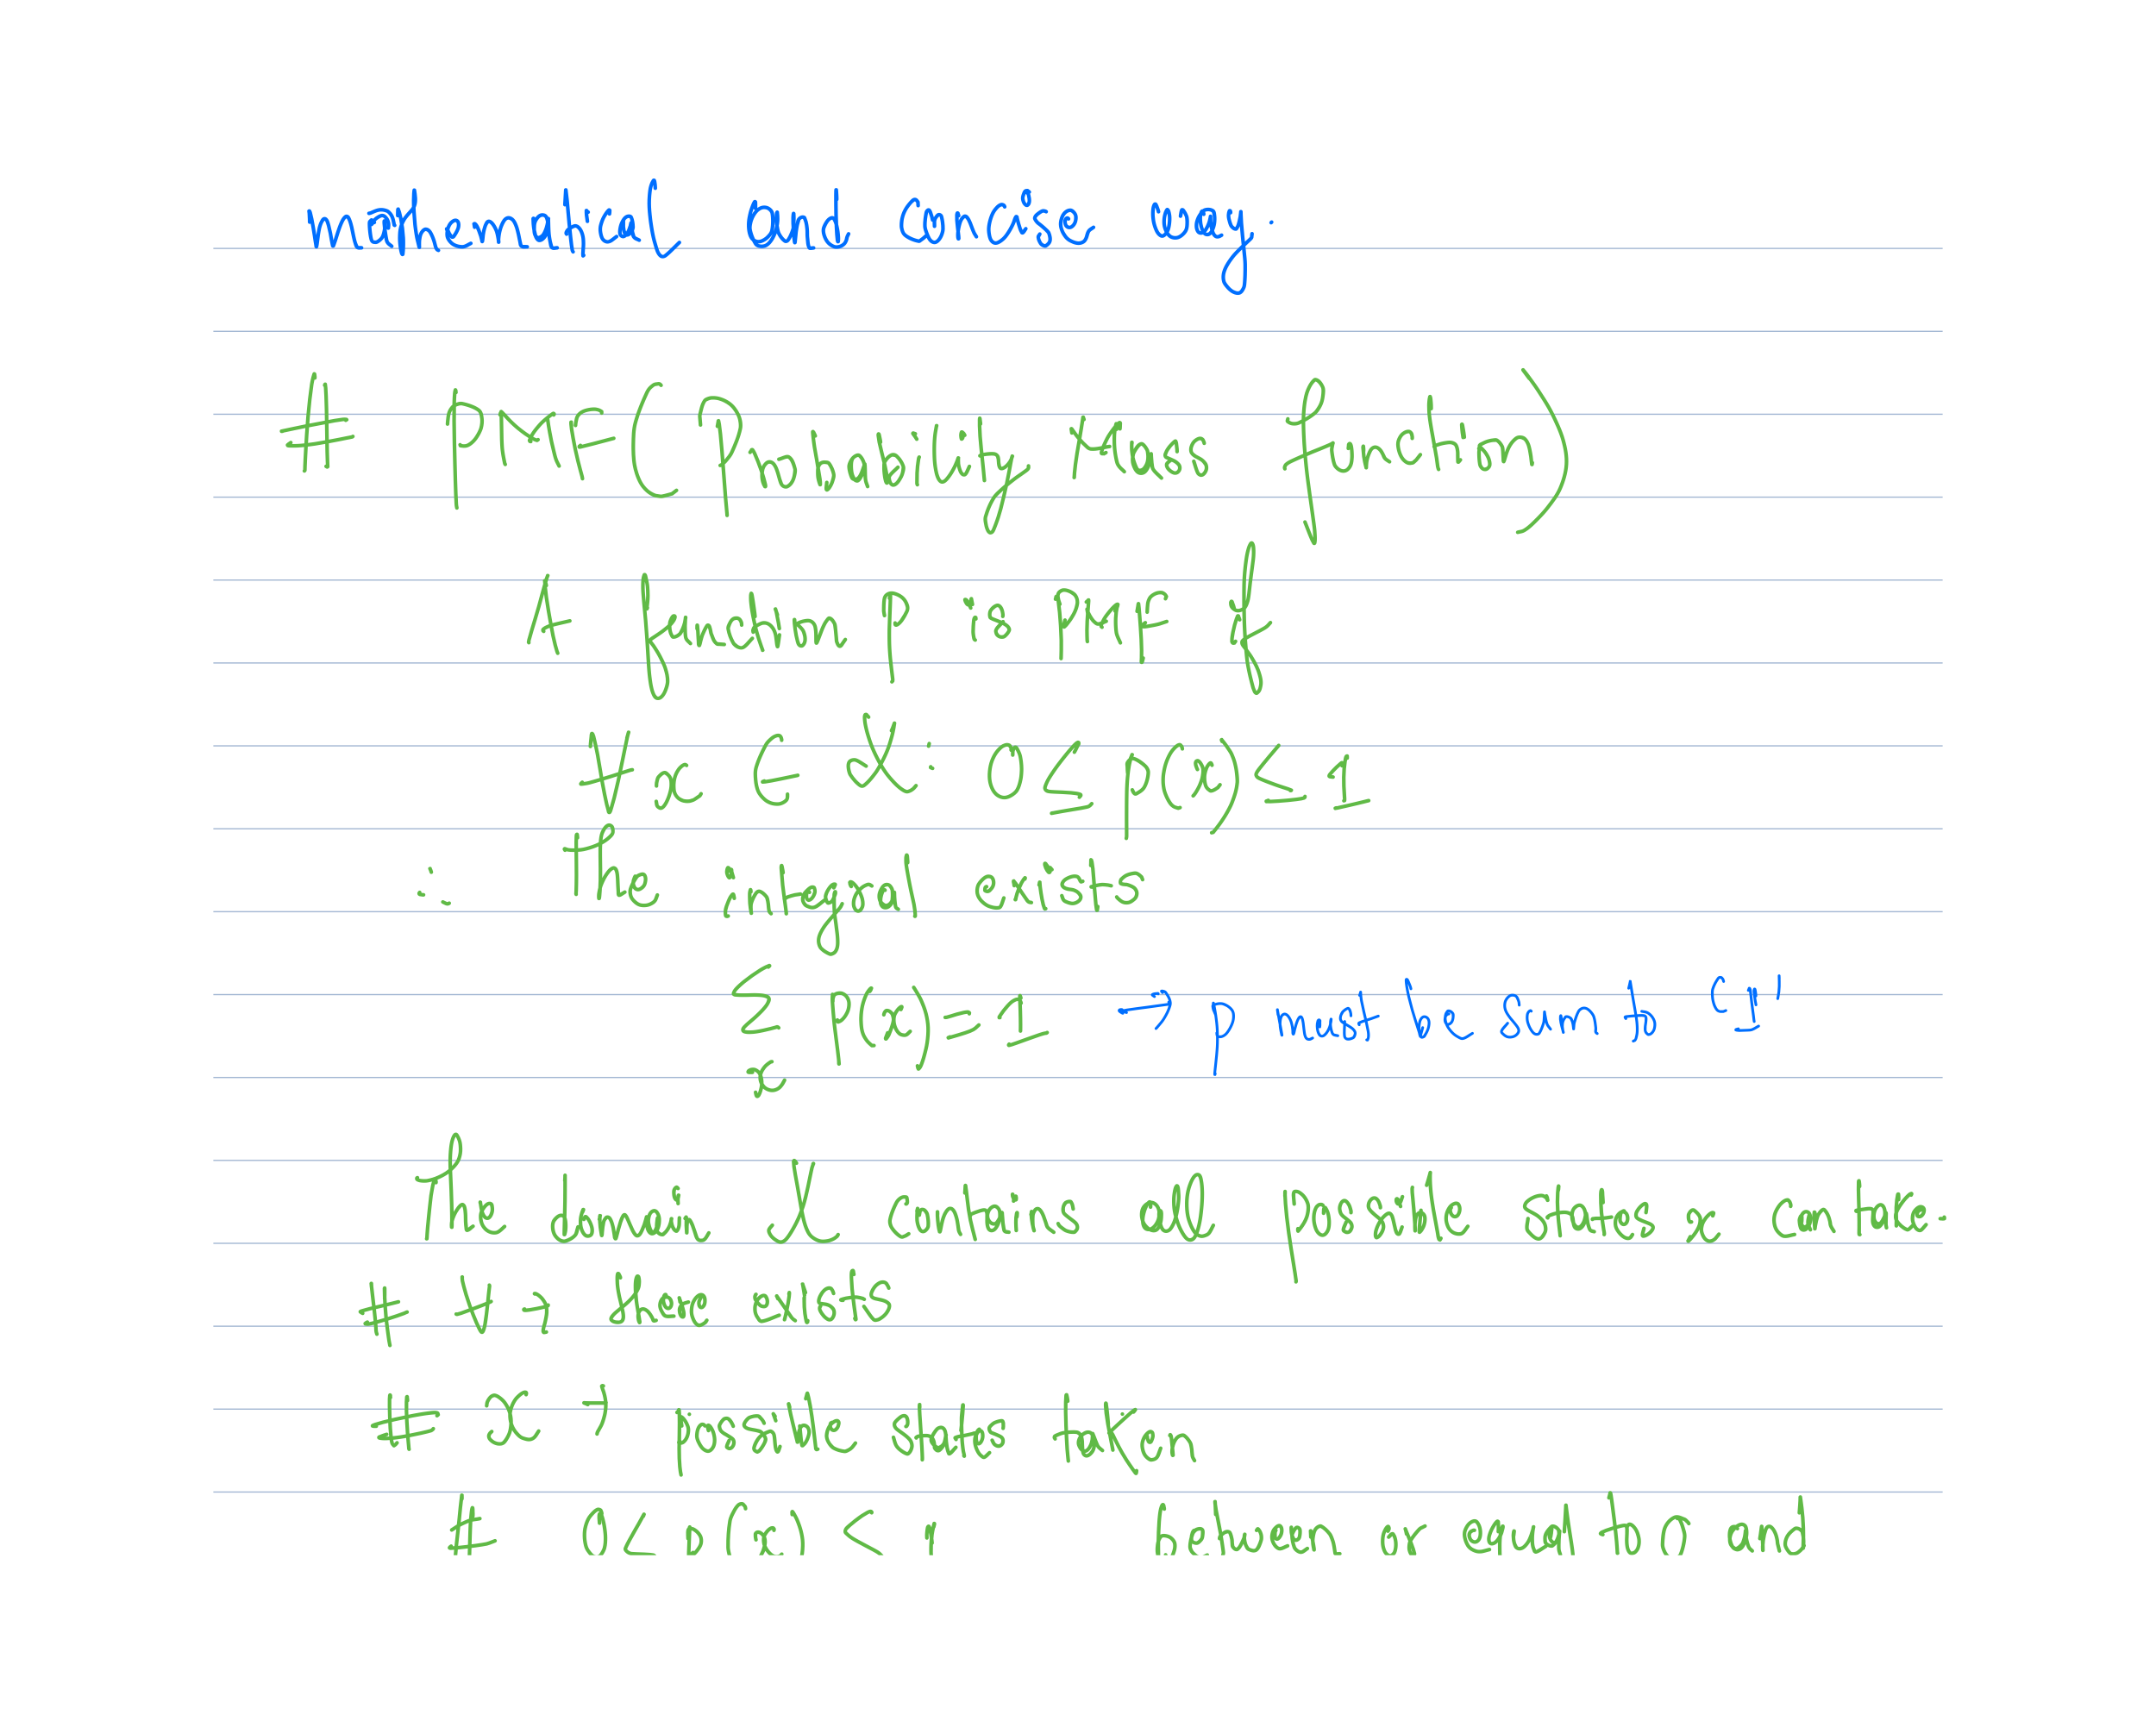 mathematical and concise way.
# PMF ( Probability Mass function )
A function p is PMF if
∀x ∈ X : 0 ≤ p(x) ≤ 1
∴ The integral exists
∑ p(x) = 1 → p must be sum to "1"
x
The domain X contains all possible states a can take.
# ∀ → there exists
# x → possible states taken
# 0 ≤ p(x) ≤ 1 between or equal to 0 and